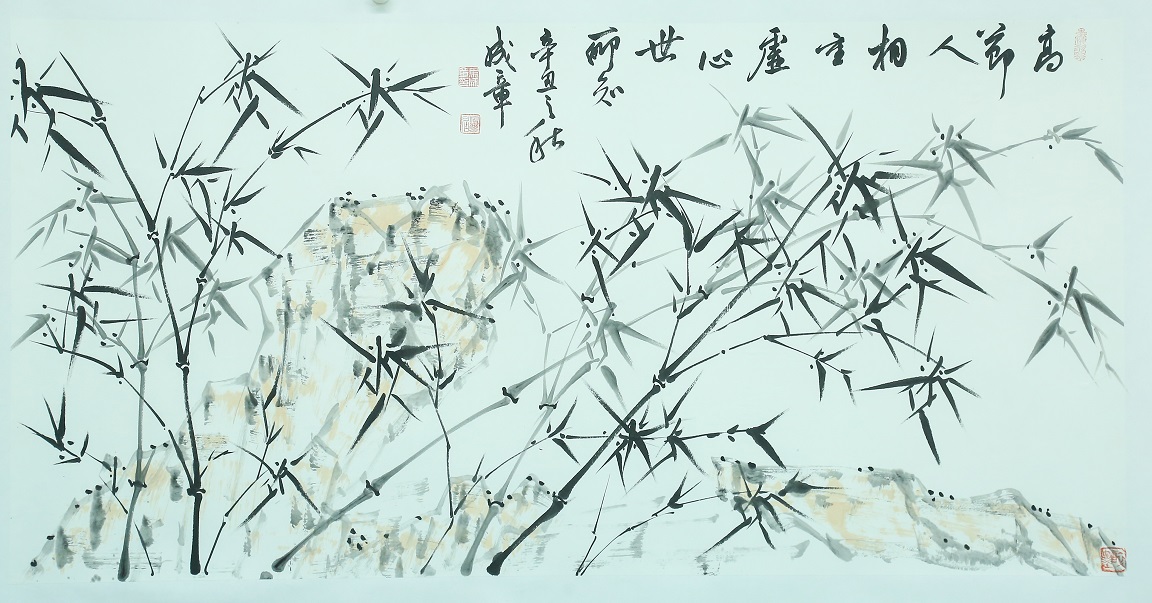 高節人相重虛心世所知
辛丑之秋
成章